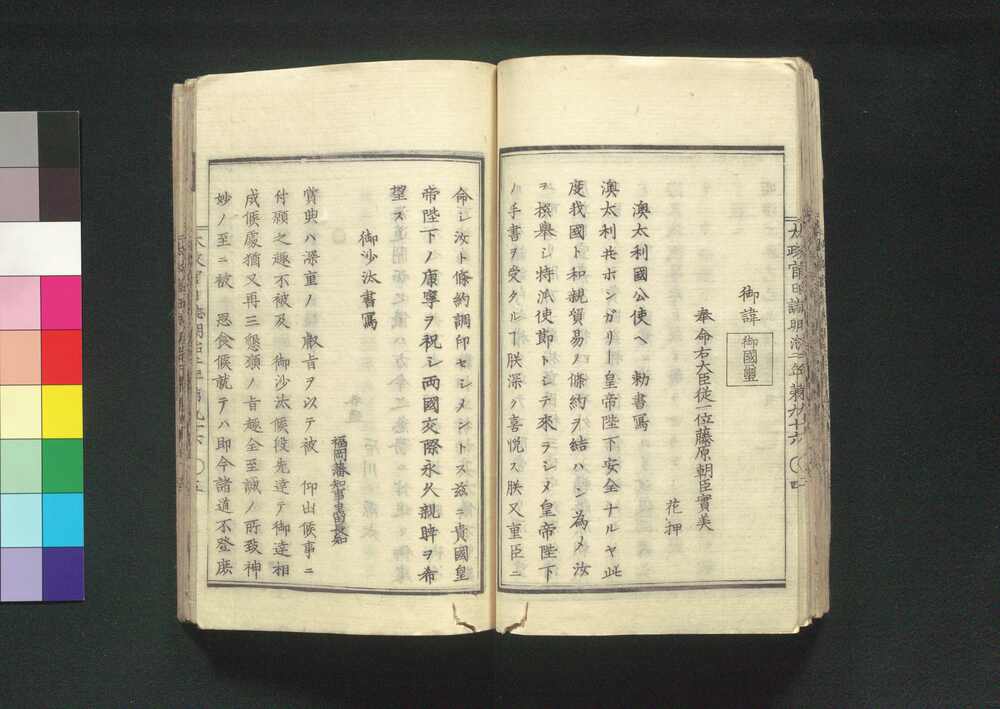 御諱 御國璽
奉命右大臣從一位藤原朝臣實美
花押
澳太利國公使ヘ 勅書寫
澳太利共ホンガリー皇帝陛下安全ナルヤ此
度我國ト和親貿易ノ條約ヲ結ハン為メ汝
ヲ撰擧シ特派使節トシテ來ラシメ皇帝陛下
ノ手書ヲ受クルヿ朕深ク喜悦ス朕又重臣ニ
命シ汝ト條約調印セシメントス茲ニ貴國皇
帝陛下ノ康寧ヲ祝シ両國交際永久親睦ヲ希
望ス
御沙汰書寫
福岡藩知事黒田長知
賞典ハ深重ノ 叡旨ヲ以テ被 仰出候事ニ
付願之趣不被及 御沙汰候段先達テ御達相
成候處猶又再三懇願ノ旨趣全至誠ノ所致神
妙ノ至ニ被 思食候就テハ即今諸道不登庶
太政官日誌明治二年第九十六
四